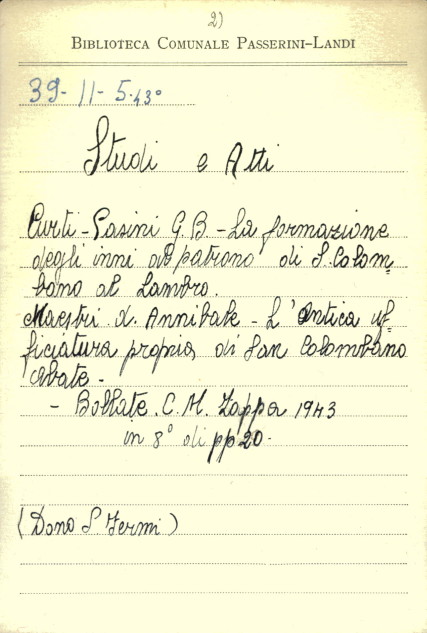 2)
BIBLIOTECA COMUNALE PASSERINI-LANDI
39-11-5.43°
Studi e Atti
Curti-Pasini G.B - La formazione
degli inni al patrono di S. Colom=
bano al Lambro.
Maestri d. Annibale - L'Antica uf=
ficiatura propria di San Colombano
Abate -
- Bollate. C. M. Zappa 1943
in 8° di pp 20.
(Dono S. Fermi)